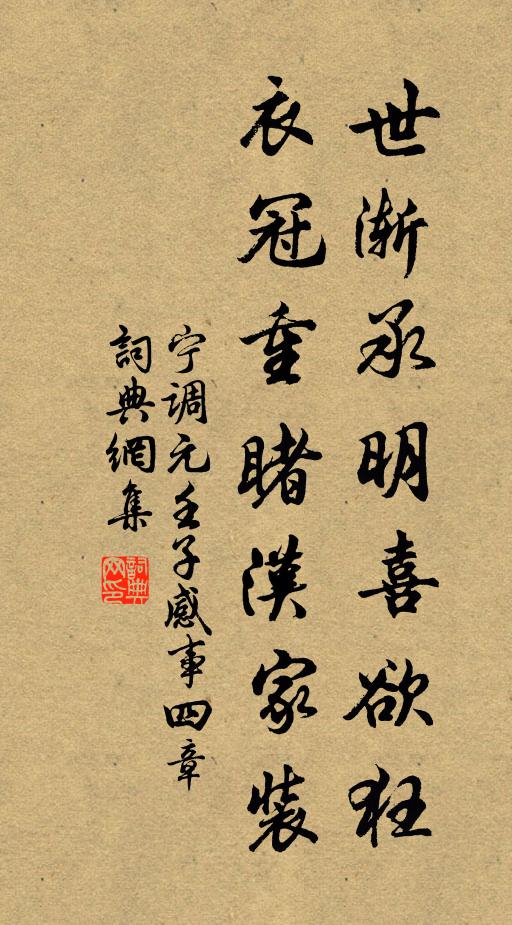 世渐承明喜欲狂
衣冠重睹漢家装
宁调元壬子感事四章
詞典網集
詞典網印